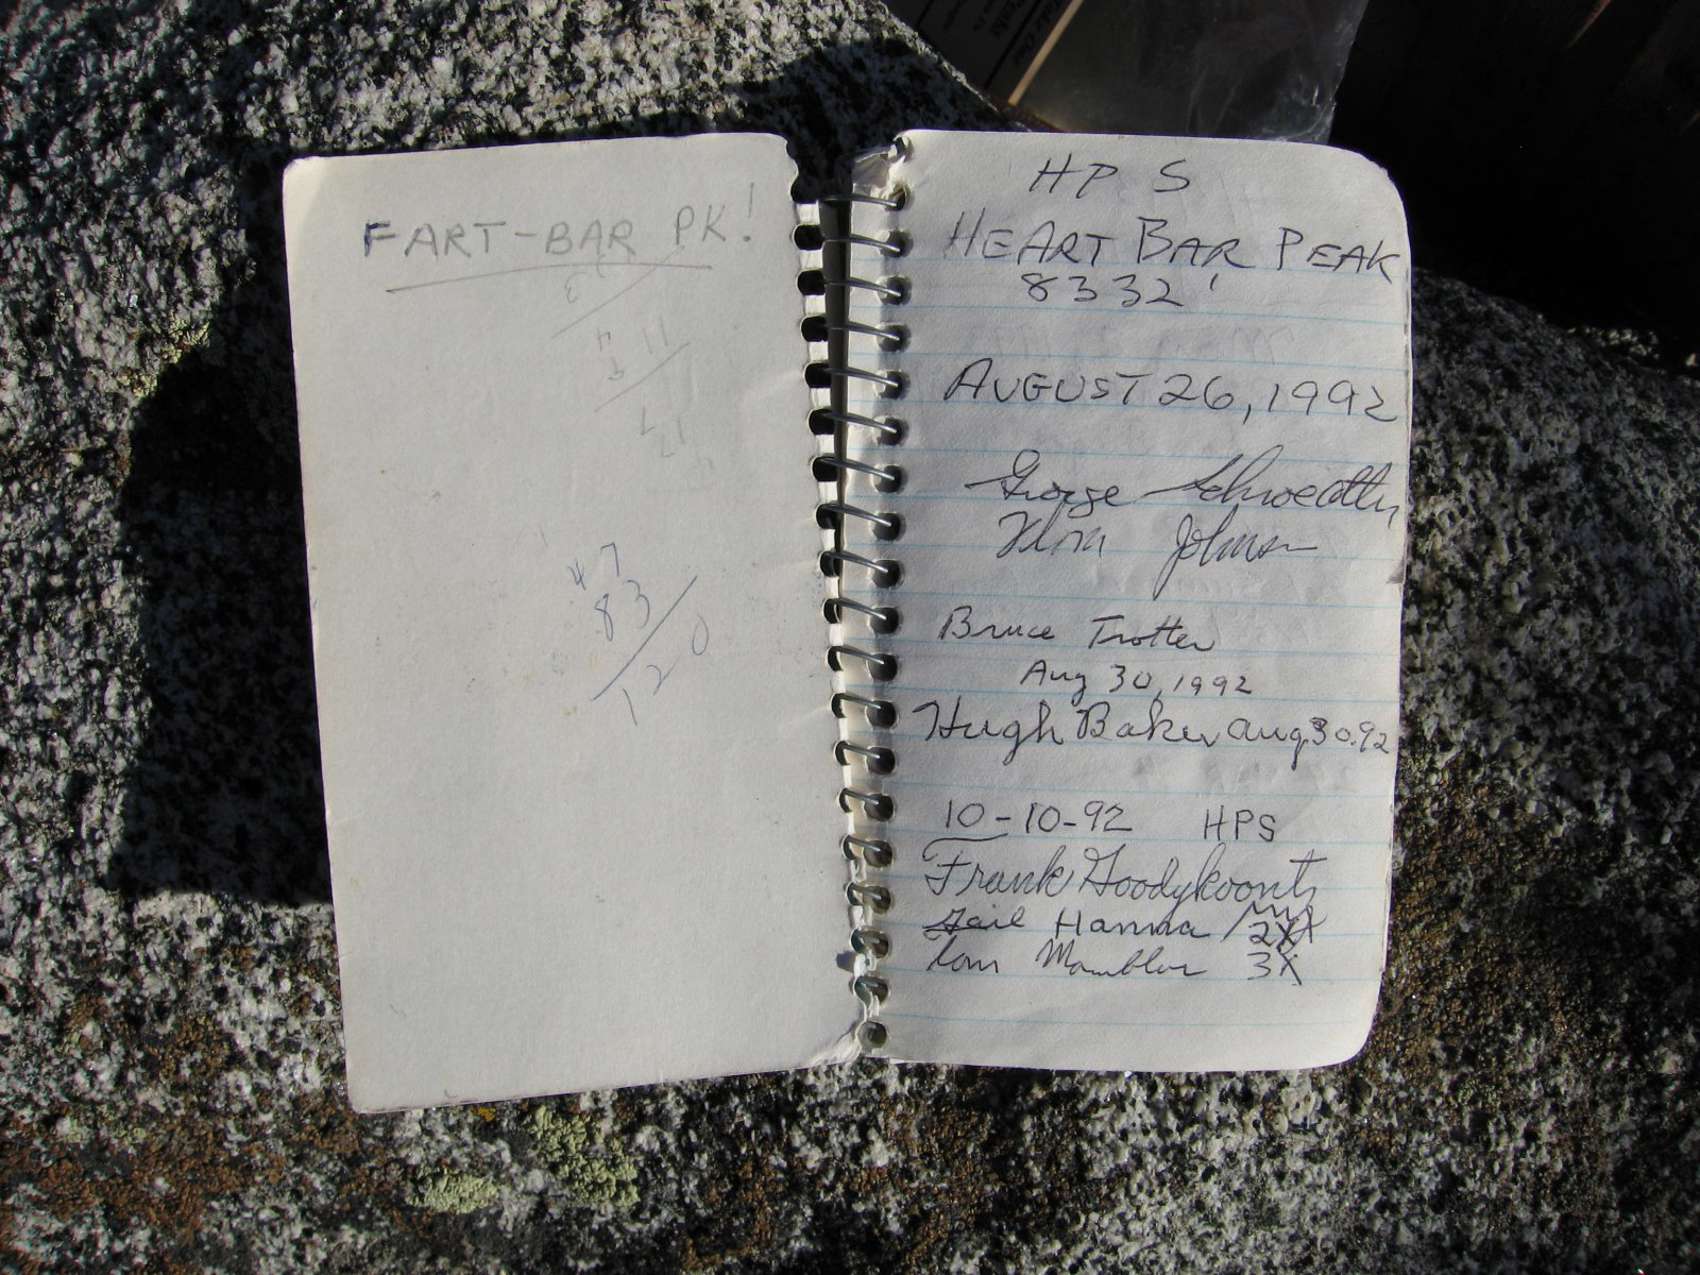 FART-BAR PK!
47
83
120
HPS
HEART BAR PEAK
8332'
AUGUST 26, 1992
George
Johnson
Bruce Trotter
Aug 30, 1992
Hugh Baker Aug 30.92
10-10-92 HPS
Frank Goodykoontz
Gail Hanna 2X
Tom 3X